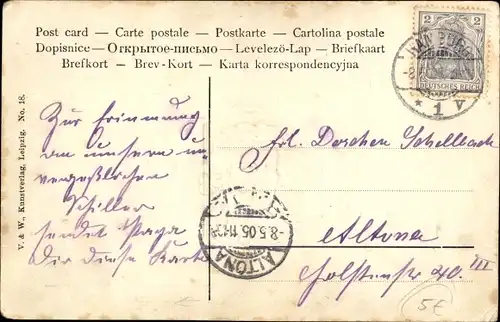 Post card — Carte postale — Postkarte — Cartolina postale
Dopisnice — Открытое-письмо — Levelező-Lap — Briefkaart
Brefkort — Brev-Kort — Karta korrespondencyjna
2
DEUTSCHES REICH
* 1 V
V. & W., Kunstverlag, Leipzig. No. 18.
Zur Erinnerung
an unsern un-
vergeßlichen
Schiller
sendet Papa
dir diese Karte
Frl. Dorchen Schellbach
Altona
Holstenstr 40. III
-8.5.05. 11-12
ALTONA
5€